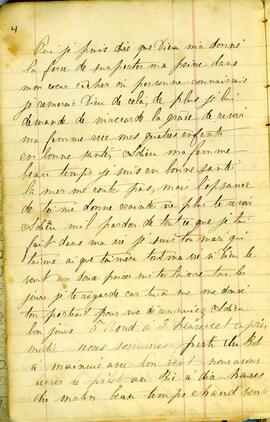 4
Oui je puis dire que Dieu ma donné
la force de surporter ma peine dans
mon coeur cacher ou personne connaissais
je remerci Dieu de cela, de plus je lui
demande de maccorde la grace de revoir
ma femme avec mes quatres enfants
en bonne santé, Adieu ma femme
beau temps je suis en bonne santé
la mer me coute pas, mais l'absance
de toi me donne crainte ne plus te revoir
Adieu mil pardon de tout ce que je tai
fait dans ma vie je suis ton mari qui
taime a que taimera tout ma vie si Dieu le
veut un doux baiser sur ta lèvre tous les
jours je te regarde car tu a us me donné
ton portrait pour me Adieu
bon jours 5 Nord a 3 heures et après
midi nous sommes partir du
a au bon vent nous avons
le pilot au a dix heures
du matin beau temps chaud vent